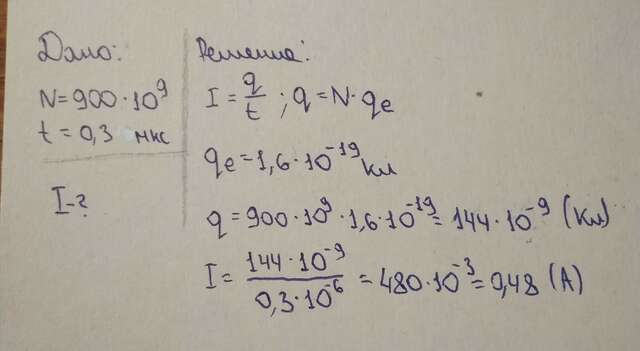 Дано:
N=900·10⁹
t = 0,3 мкс
I-?
Решение:
I = q/t ; q = N·qe
qe = 1,6·10⁻¹⁹ Кл
q = 900·10⁹·1,6·10⁻¹⁹ = 144·10⁻⁹ (Кл)
I = 144·10⁻⁹/0,3·10⁻⁶ = 480·10⁻³ = 0,48 (А)